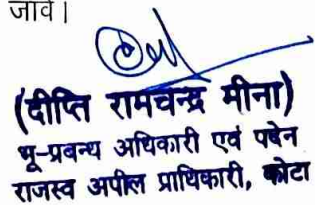 जावे।
(दीप्ति रामचन्द्र मीना)
भू-प्रबन्ध अधिकारी एवं पदेन
राजस्व अपील प्राधिकारी, कोटा